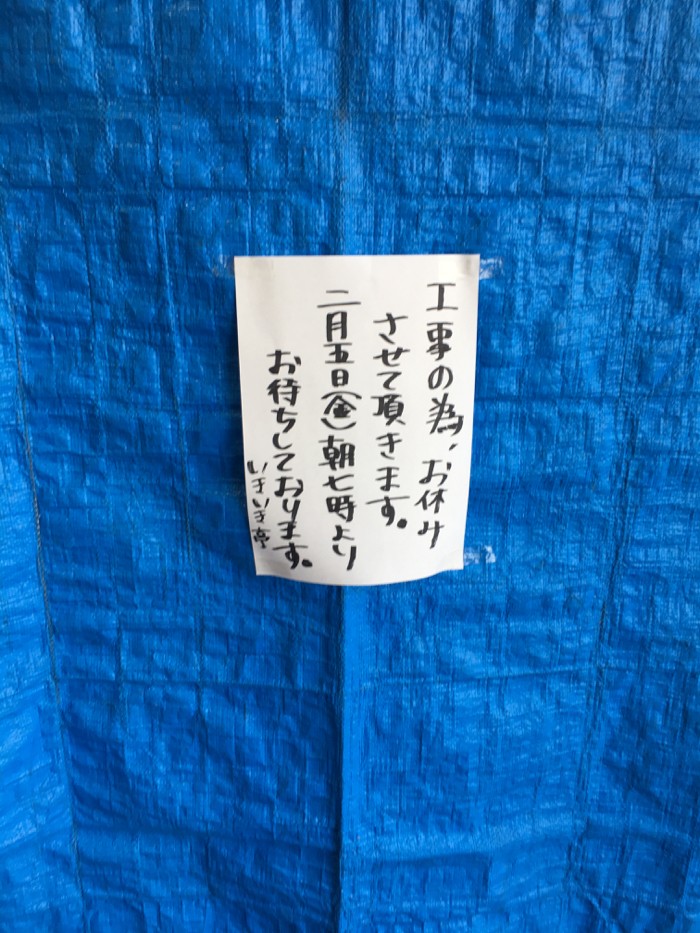 工事の為、お休み
させて頂きます。
二月五日(金)朝七時より
お待ちしております。
いまいま亭